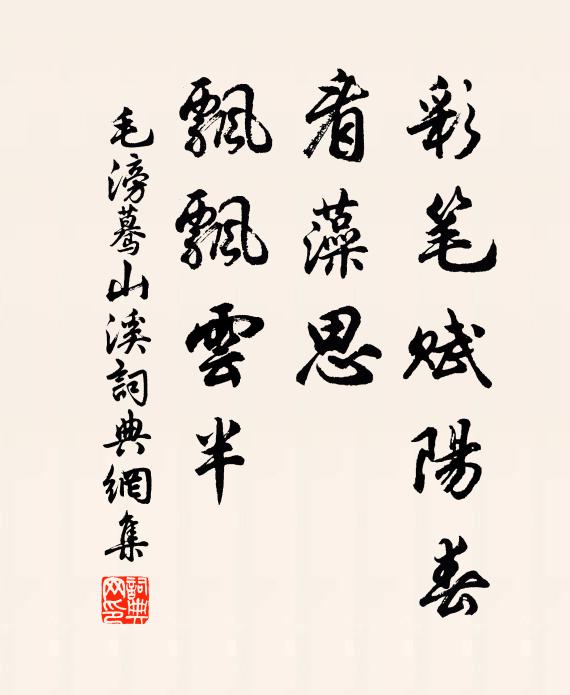 彩笔赋陽春
看藻思
飄飄雲半
毛滂驀山溪詞典網集
詞典网印